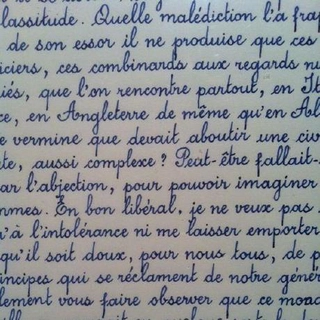 lassitude. Quelle malédiction l'a frap
de son essor il ne produise que ces
iciers, ces combinards aux regards nu
iés, que l'on rencontre partout, en It
ce, en Angleterre de même qu'en Al
e vermine que devait aboutir une civ
te, aussi complexe? Peut-être fallait-
ar l'abjection, pour pouvoir imaginer
mmes. En bon libéral, je ne veux pas
u'à l'intolérance ni me laisser emporter
qu'il soit doux, pour nous tous, de p
incipes qui se réclament de notre génér
lement vous faire observer que ce mond